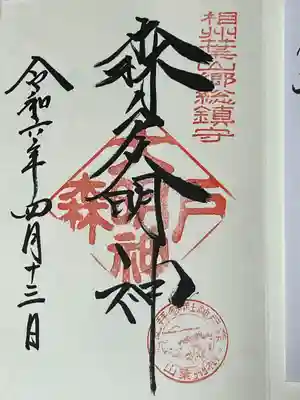 相州葉山郷総鎮守
森戸大明神
森戸大明神
令和六年四月十三日